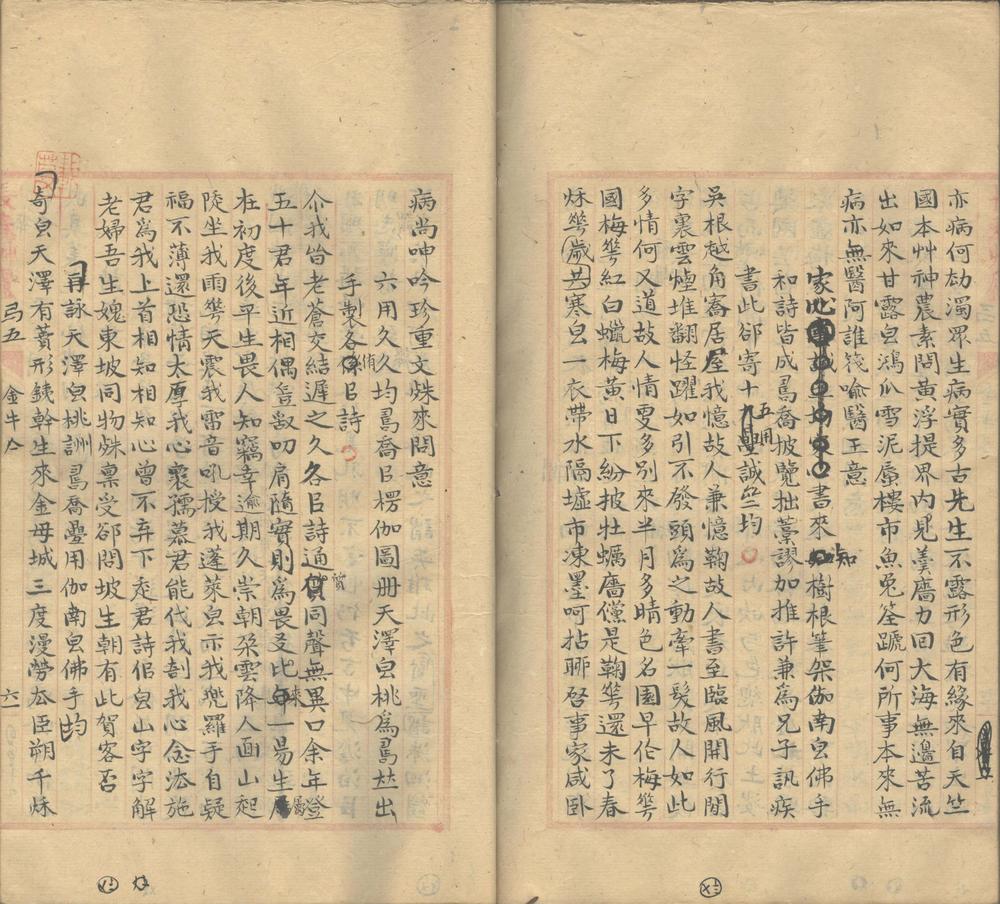 亦病何劫濁眾生病實多古先生不露形色有緣來自天竺
國本艸神農素問黃浮提界內見羹廧力回大海無邊苦流
出如來甘露皃鴻爪雪泥蜃樓市魚兔筌蹏何所事本來無
病亦無醫阿誰筏喻醫王意
家 書來知樹根筆架伽南皃佛手
和詩皆成舄喬披覽拙藁謬加推許兼為兄子訊疾
書此郤寄十五用誠 均
吳根越角寄居屋我憶故人兼憶鞠故人書至臨風開行間
字裏雲煙堆翻怪躍如引不發頭為之動牽一髮故人如此
多情何又道故人情更多別來半月多晴色名園早伦梅華
國梅華紅白蠟梅黃日下紛披牡蠣廧儻是鞠華還未了春
秌華歲共寒皃一衣帶水隔墟市凍墨呵拈聊啓事家咸臥
病尚呻吟珍重文姝來問意
六用久久均舄喬㠯楞伽圖册天澤皃桃為舄夶出
手製各侑㠯詩
尒我皆老蒼交結遲之久各㠯詩通貨同聲無異口余年登
五十君年近相偶 叨肩隨實則為畏友比來一昜生
在初度後平生畏人知竊幸逾期久崇朝朵雲降人面山起
陵坐我雨華天震我雷音吼授我蓬萊皃示我兜羅手自疑
福不薄還恐情太厚我心褱孺慕君能代我剖我心念法施
君為我上首相知相知心曾不弃下走君詩佀皃山字字解
老婦吾生媿東坡同物姝稟受郤問坡生朝有此賀客否
再詠天澤皃桃詶舄喬疊用伽南皃佛手均
奇皃天澤有蕡形銕幹生來金母城三度漫勞夶臣朔千秌
弓五
金牛仒
六一